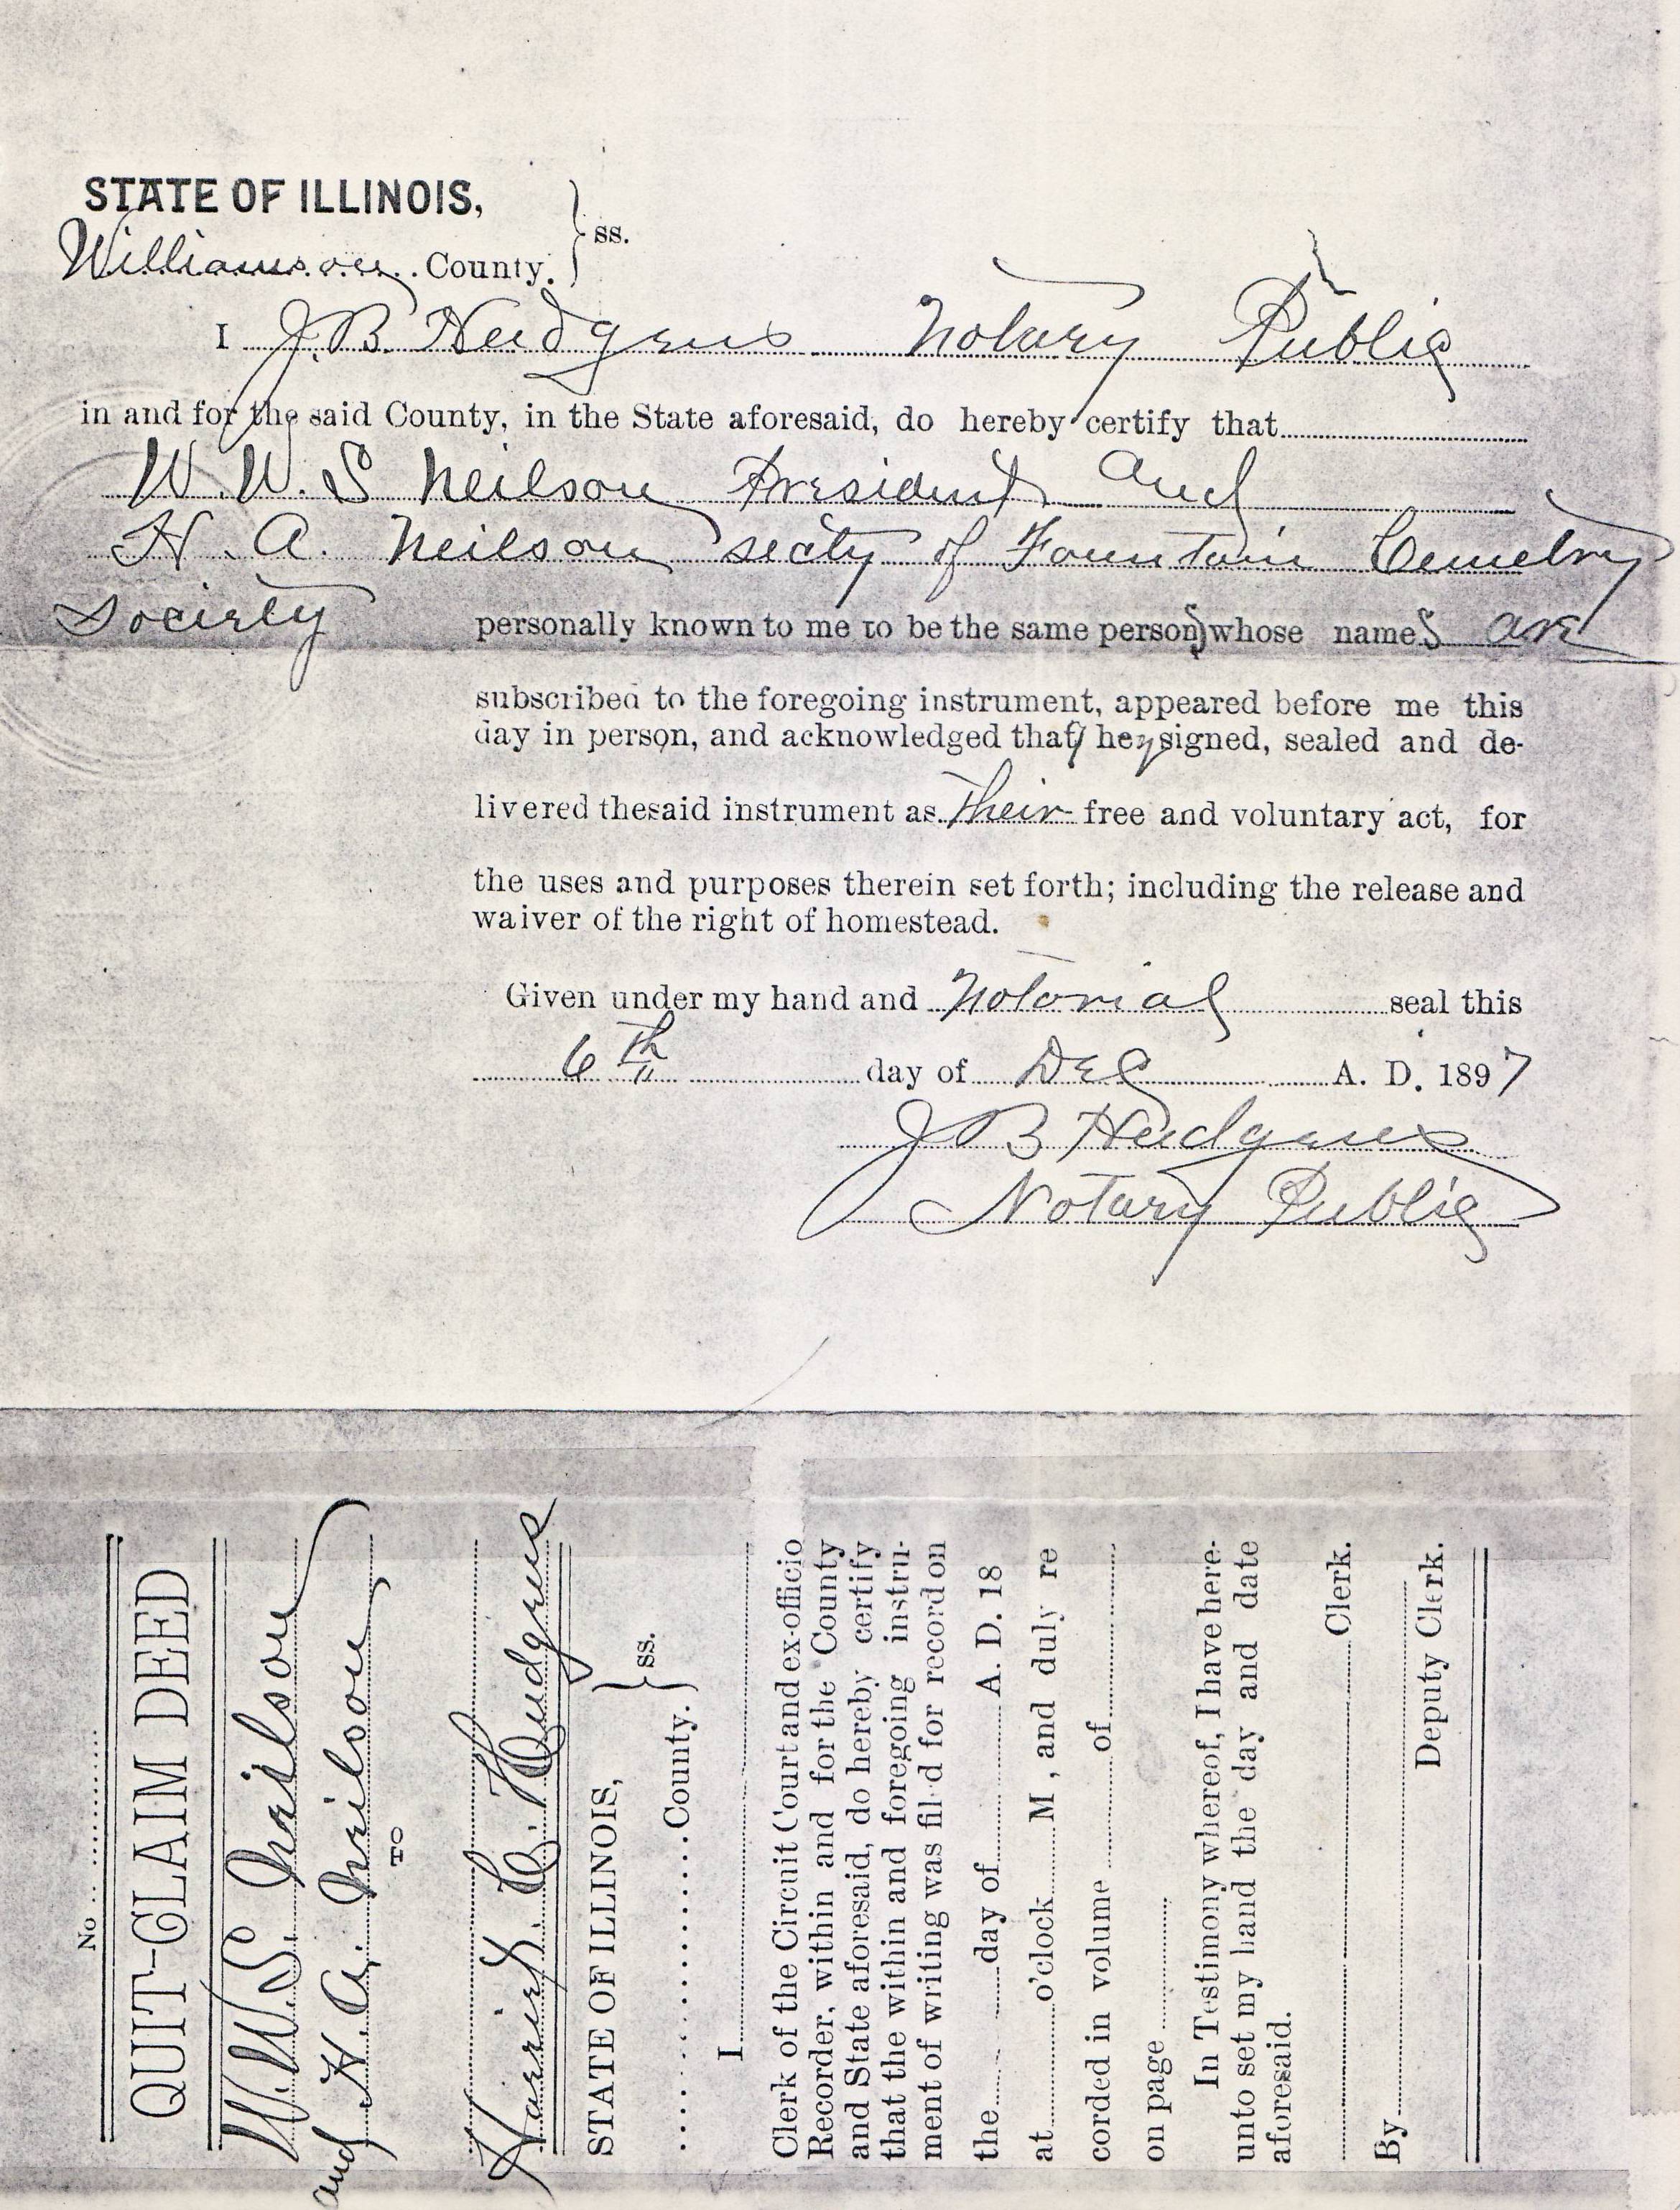 STATE OF ILLINOIS,
Williamson County. } ss.
I J. B. Hudgens Notary Public
in and for the said County, in the State aforesaid, do hereby certify that
W. W. S Neilson President and
H. A. Neilson secty of Fountain Cemetry
Society personally known to me to be the same persons whose names are
subscribed to the foregoing instrument, appeared before me this
day in person, and acknowledged that they signed, sealed and de-
livered the said instrument as their free and voluntary act, for
the uses and purposes therein set forth; including the release and
waiver of the right of homestead.
Given under my hand and Notorial seal this
6th day of Dec A. D. 1897
J B Hudgens
Notary Public
No
QUIT-CLAIM DEED
W. W. S. Neilson
and H. A. Neilson
TO
Harriet C. Hudgens
STATE OF ILLINOIS,
County. } ss.
I
Clerk of the Circuit Court and ex-officio
Recorder, within and for the County
and State aforesaid, do hereby certify
that the within and foregoing instru-
ment of writing was filed for record on
the day of A. D. 18
at o'clock M, and duly re
corded in volume of
on page
In Testimony whereof, I have here-
unto set my hand the day and date
aforesaid.
Clerk.
By
Deputy Clerk.